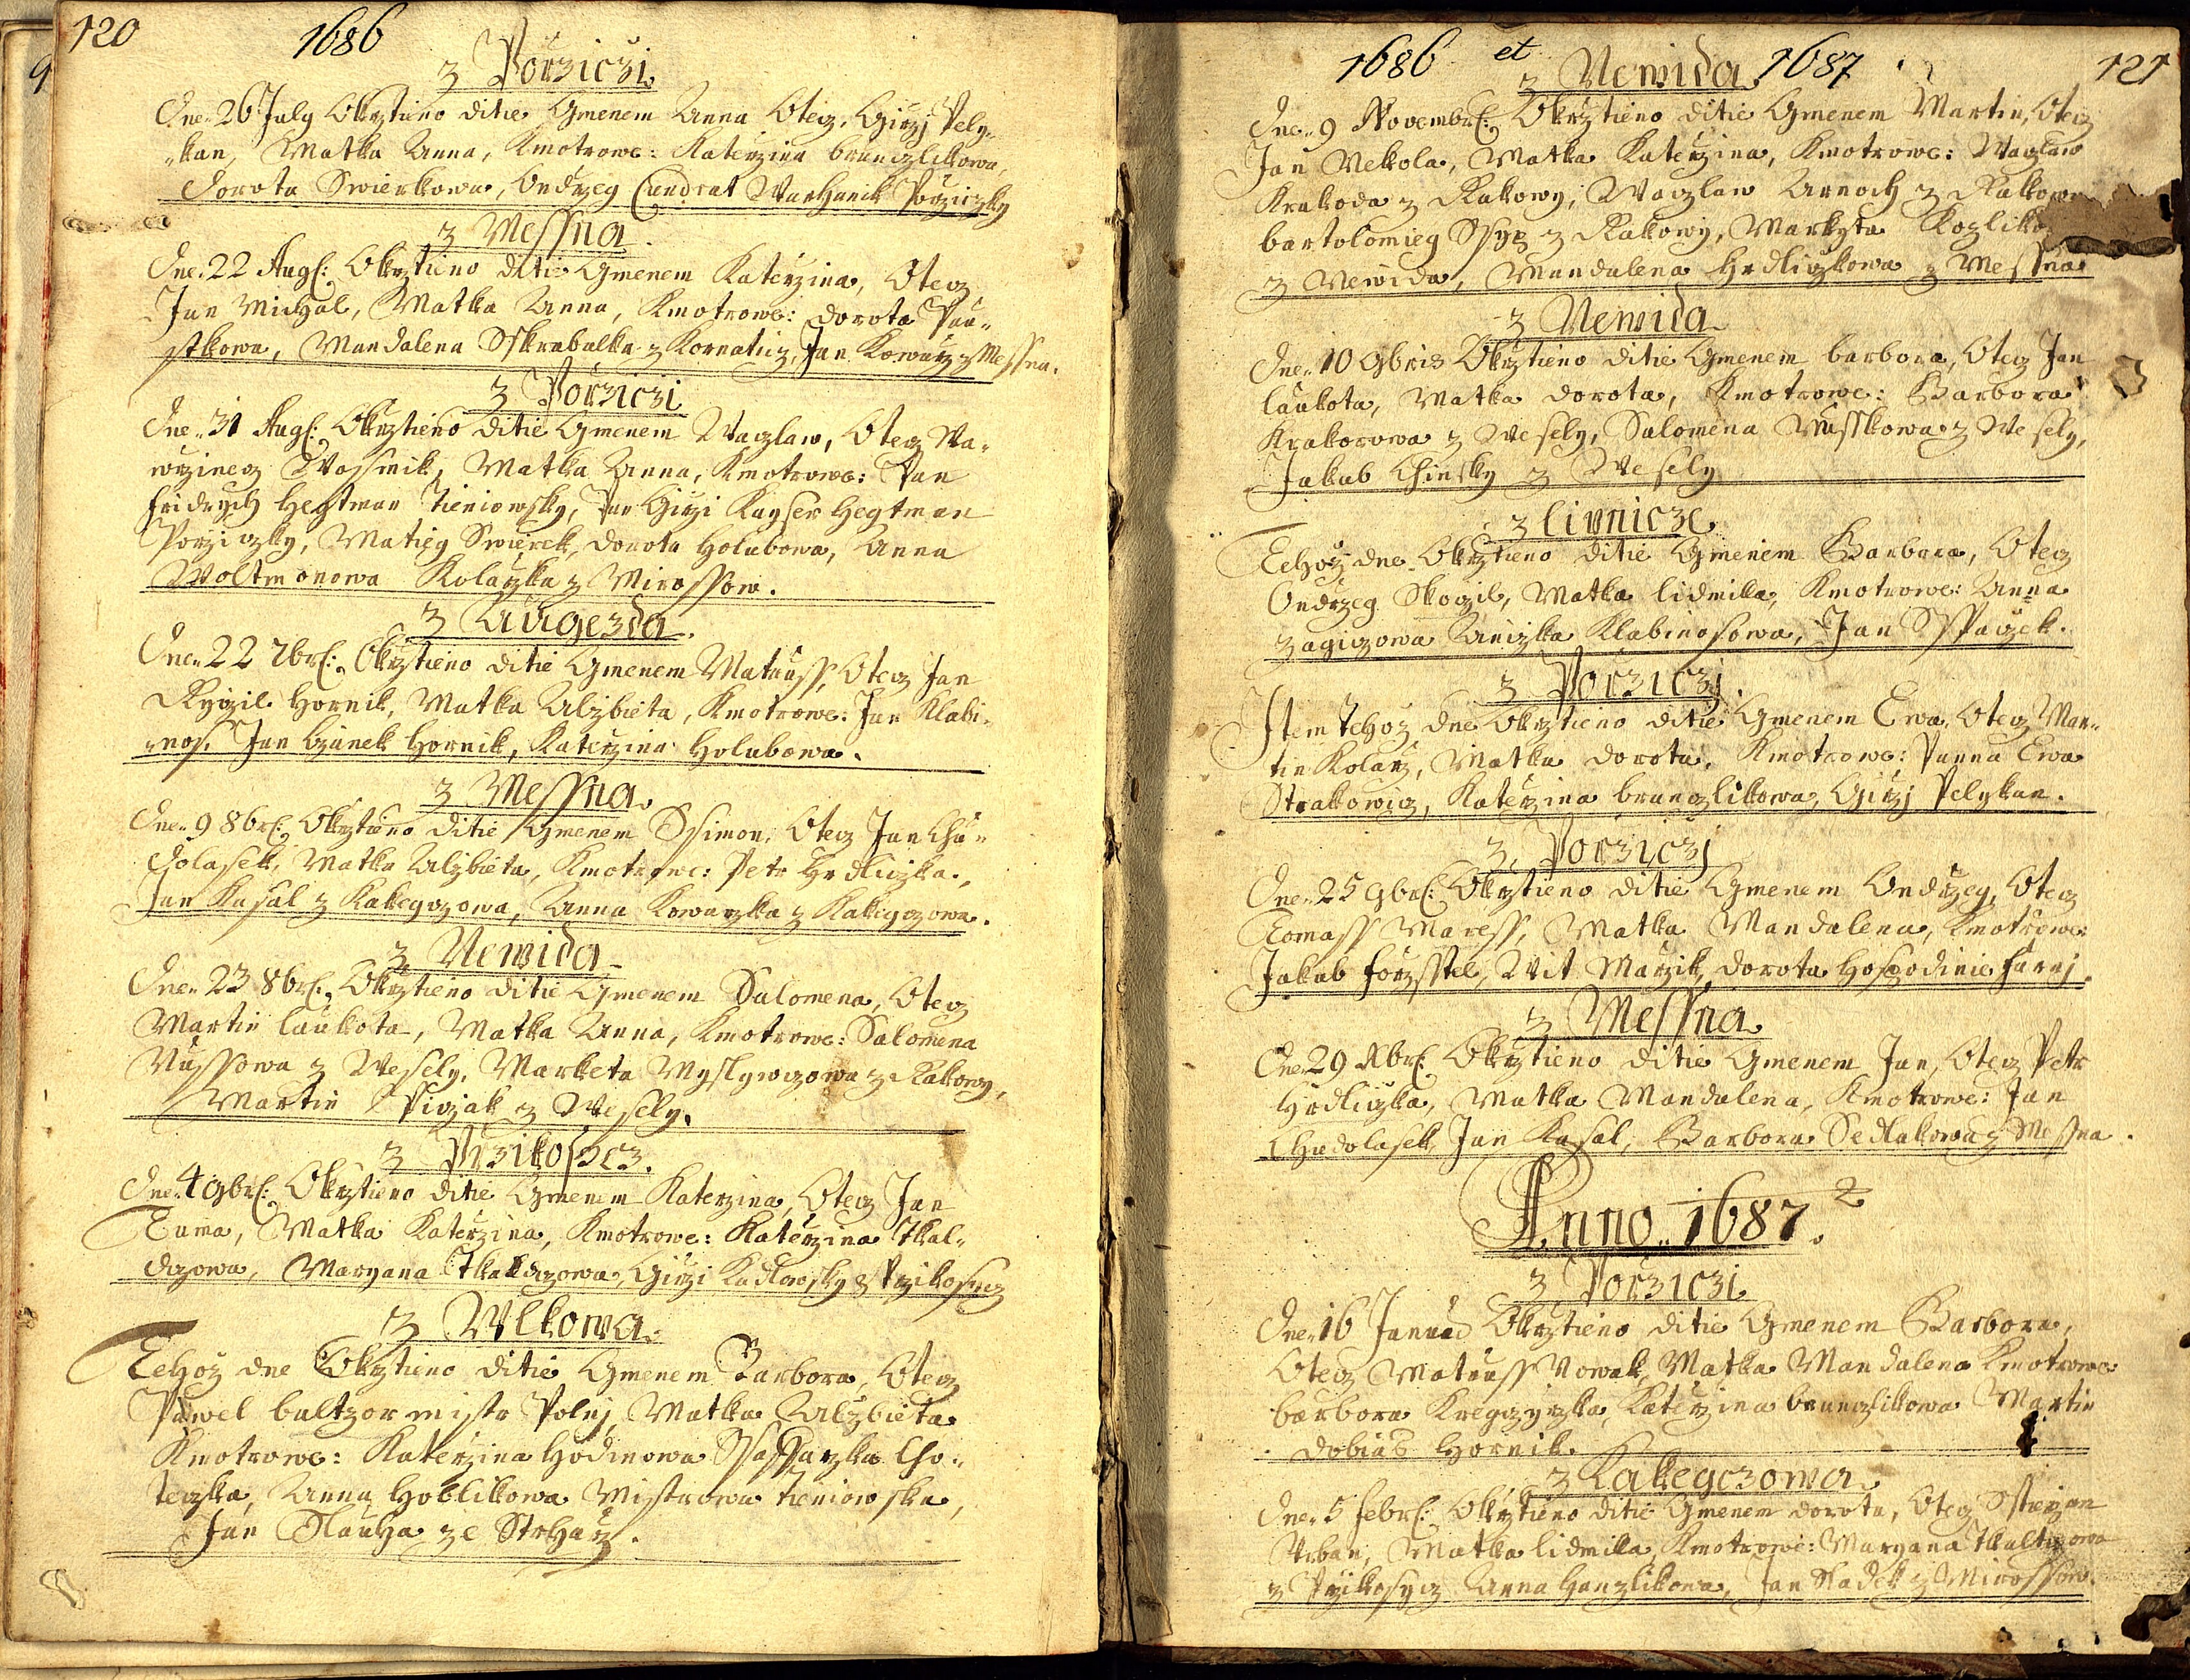 120
1686
z Porziczi
Dne 26 July Okrztieno Ditie Gmenem Anna Otecz, Girzj Pely-
-kan, Matka Anna, Kmotrowe: Katerzina brunczlikowa,
Dorota Swierkowa, Ondrzeg Cundrat Warhanik Porziczky
z Messna.
Dne 22 Aug: Okrztieno Ditie Gmenem Katerzina, Otecz
Jan Michal, Matka Anna, Kmotrowe: Dorota Pau-
stkowa, Mandalena Sskrabalka z Kornaticz, Jan Kowarz z Messna.
z Porziczi
Dne 31 Aug: Okrztieno Ditie Gmenem Waczlaw, Otecz Wa-
wrzinecz Wossmik, Matka Anna, Kmotrowe: Pan
Fridrych Hegtman Tieniowsky, Pan Girzi Kayser Hegtman
Porziczky, Matieg Swierck, Dorota Holubowa, Anna
Woltmonowa Kolarzka z Mirossow.
z Augezda.
Dne 22 7br: Okrztieno Ditie Gmenem Matauss, Otecz Jan
Ryczil Hornik, Matka Alzbieta, Kmotrowe: Jan Klabi-
-nos, Jan Hornik, Katerzina Holubowa.
z Messna.
Dne 9 8br: Okrztieno Ditie Gmenem Ssimon, Otecz Jan Chu-
dolasek, Matka Alzbieta, Kmotrowe: Petr Hrdliczka,
Jan Kasal z Kakegczowa, Anna Kowarzka z Kakegczowa.
z Newida
Dne 23 8br: Okrztieno Ditie Gmenem Salomena, Otecz
Martin Laukota, Matka Anna, Kmotrowe: Salomena
Mussowa z Wesely, Marketa Myslywczowa z Rakowy,
Martin Piczak z Wesely.
z Przikosycz.
Dne 4 9br: Okrztieno Ditie Gmenem Katerzina, Otecz Jan
Tuma, Matka Katerzina, Kmotrowe: Katerzina Tkal-
czowa, Maryana Tkalczowa, Girzi Kadlowsky z Przikosycz
z Wlkowa.
Tehoz dne Okrztieno Ditie Gmenem Barbora, Otecz
Pawel baltzor mistr Polnj, Matka Alzbieta
Kmotrowe: Katerzina Hodinowa Ssaffarzka Cho-
teczska, Anna Hoblikowa Mistrowa Tieniowska,
Jan Slauha ze Strharz.
1686 et 1687
121
z Newida
Dne 9 Novembr: Okrztieno Ditie Gmenem Martin, Otecz
Jan Nekola, Matka Katerzina, Kmotrowe: Waczlaw
Krakoda z Rakowy, Waczlaw Arnoch z Rakowy
bartolomieg Ssyp z Rakowy, Markyta Kozliko
z Newida, Mandalena Hrdliczkowa z Messna
z Newida
Dne 10 9bris Okrztieno Ditie Gmenem barbora, Otecz Jan
Laukota, Matka Dorota, Kmotrowe: Barbora
Krakorowa z Wesely, Salomena Musskowa z Wesely,
Jakub Chinsky z Wesely
z Lipnicze
Tehoz dne Okrztieno Ditie Gmenem Barbara, Otecz
Ondrzeg Skoczil, Matka Lidmilla, Kmotrowe: Anna
zagiczowa Aniczka Klabinosowa, Jan Sspaczek.
z Porziczj
Item Tehoz dne Okrztieno Ditie Gmenem Ewa, Otecz Mar-
tin Kolarz, Matka Dorota, Kmotrowe: Panna Ewa
Strakowicz, Katerzina brunczlikowa, Girzj Pelykan.
z Porziczj
Dne 25 9br: Okrztieno Ditie Gmenem Ondrzeg, Otecz
Tomass Maress, Matka Mandalena, Kmotrowe:
Jakub Forzsstel, Wit Marzik, Dorota Hospodinie Farnj.
z Messna
Dne 29 Xbr: Okrztieno Ditie Gmenem Jan, Otecz Petr
Hrdliczka, Matka Mandalena, Kmotrowe: Jan
Chudolasek, Jan Kasal, Barbora Sedlakowa z Messna.
Anno 1687.
z Porziczi
Dne 16 Okrztieno Ditie Gmenem Barbora,
Otecz Matauss Nowak, Matka Mandalena Kmotrowe
barbora Kregczyrzka, Katerzina brunczlikowa Martin
Dobias Hornik.
z Kakegczowa
Dne 5 Febr: Okrztieno Ditie Gmenem Dorota, Otecz Sstiepan
Urban, Matka Lidmilla, Kmotrowe: Maryana Tkaltzowa
z Przikosycz Anna Hanzlikowa, Jan Sladek z Mirossow.